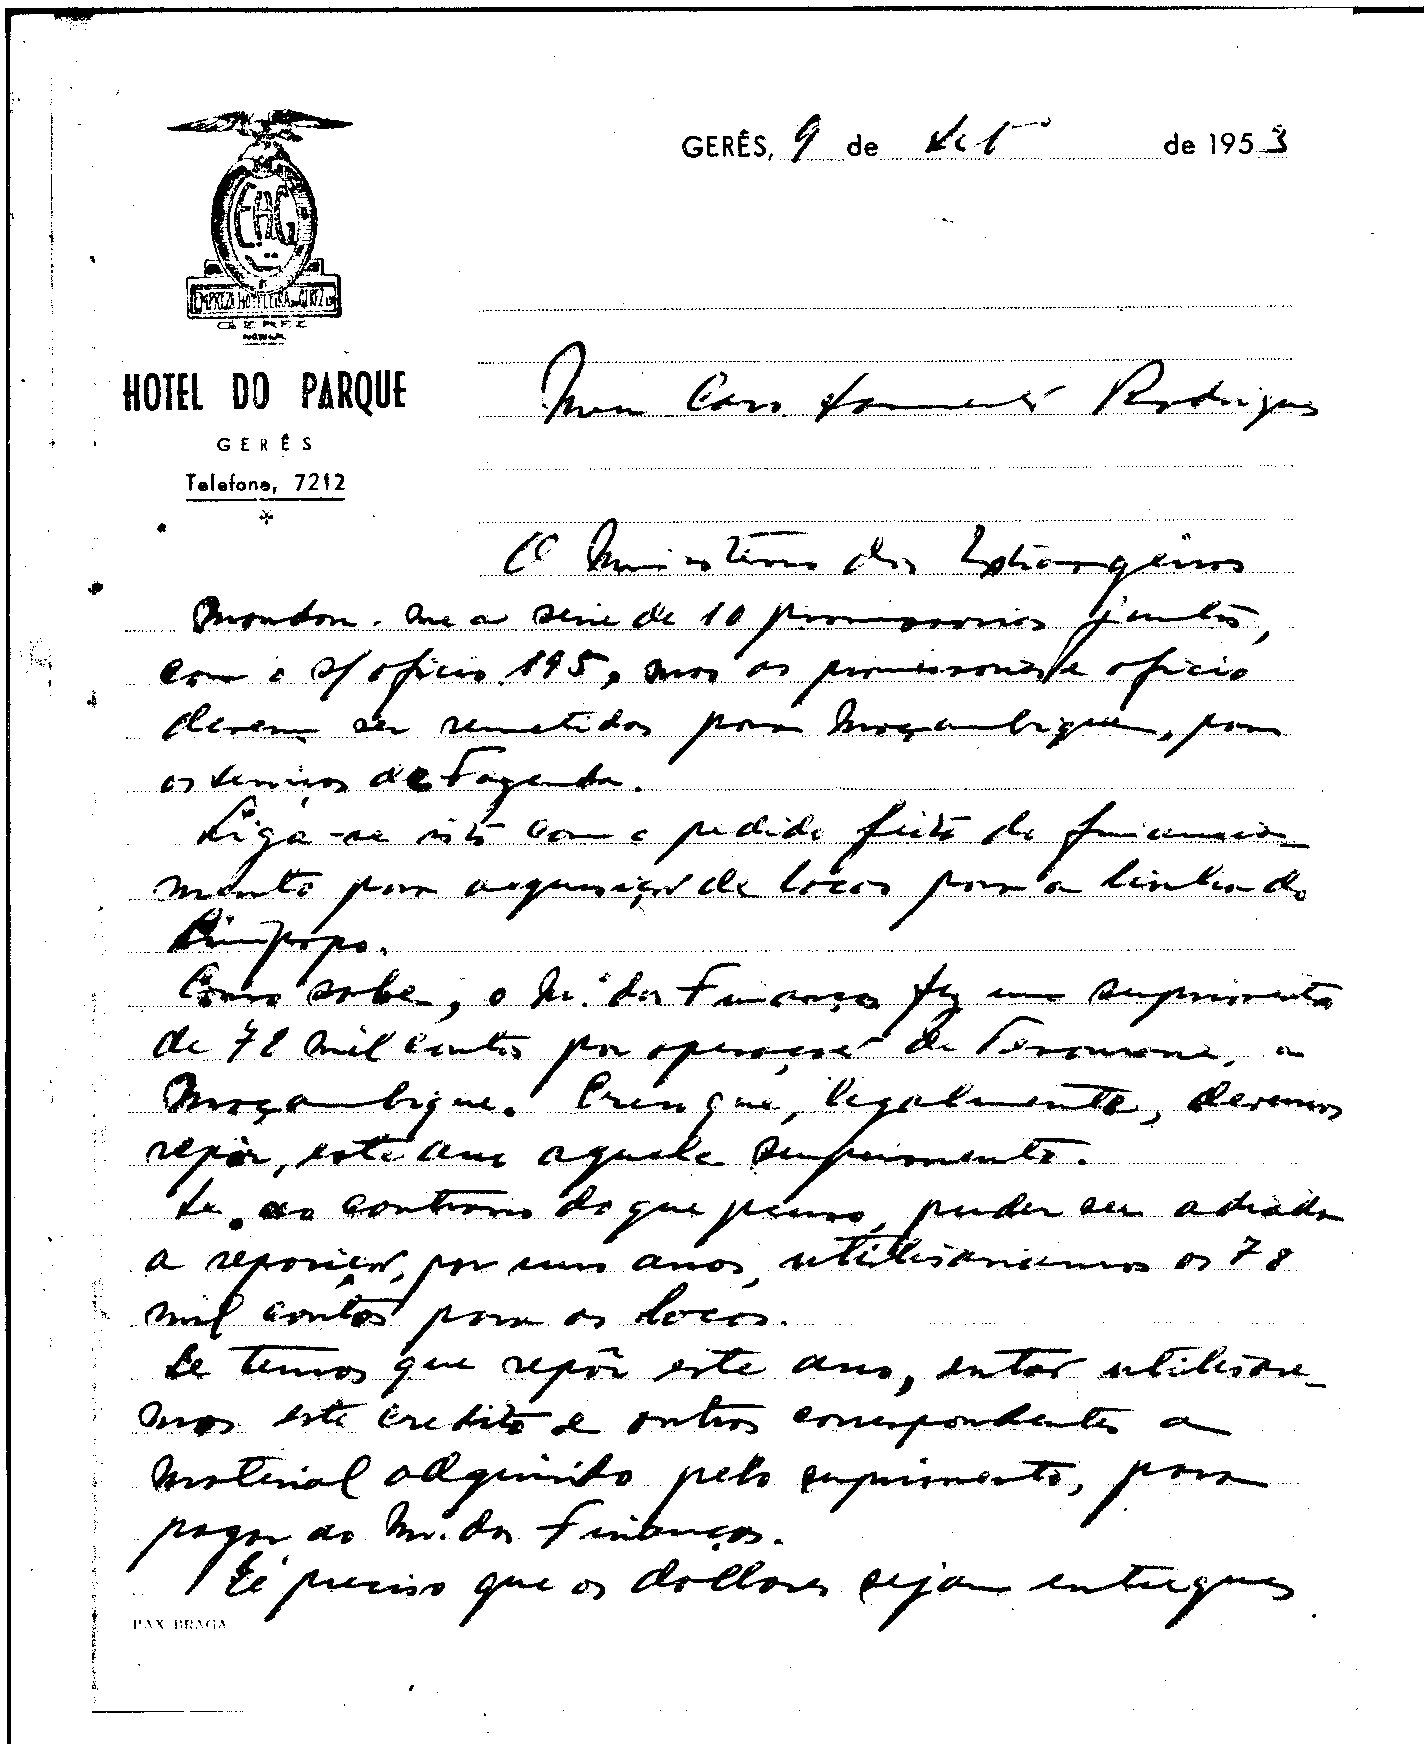 GERÊS, 9 de Setº de 1953
EHG
EMPREZA HOTELEIRA DO GEREZ LDA
GEREZ
HOTEL DO PARQUE
GERÊS
Telefone, 7212
Meu Caro Sarmento Rodrigues
O Ministério dos Estrangeiros
mandou-me a série de 10 promissorias juntas,
com o s/ oficio 195, mas as promissorias e oficio
devem ser remetidos para Moçambique, para
os serviços de Fazenda.
Liga-se isto com o pedido feito de financia-
mento para aquisição de locos para a linha do
Limpopo.
Como sabe, o M.º das Finanças fez um suprimento
de 78 mil contos por operações de Tesouraria, a
Moçambique. Creio que, legalmente, devemos
repôr, este ano aquele suprimento.
Se, ao contrario do que penso, puder ser adiada
a reposição, por uns anos, utilisariamos os 78
mil contos para as locos.
Se temos que repôr este ano, entao utilisare-
mos este credito e outros correspondentes a
material adquirido pelo suprimento, para
pagar ao M. das Finanças.
É preciso que os dollares sejam entregues
PAX BRAGA